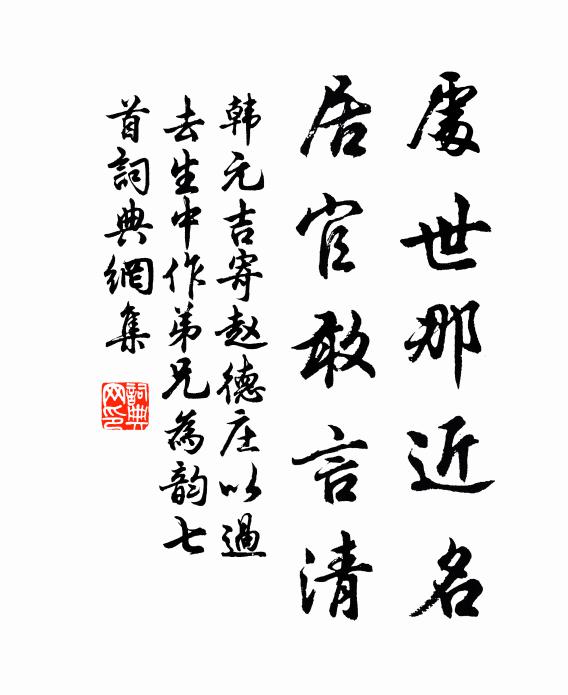 處世那近名
居官敢言清
韩元吉寄赵德庄以過
去生中作弟兄為韵七
首詞典網集
詞典网印